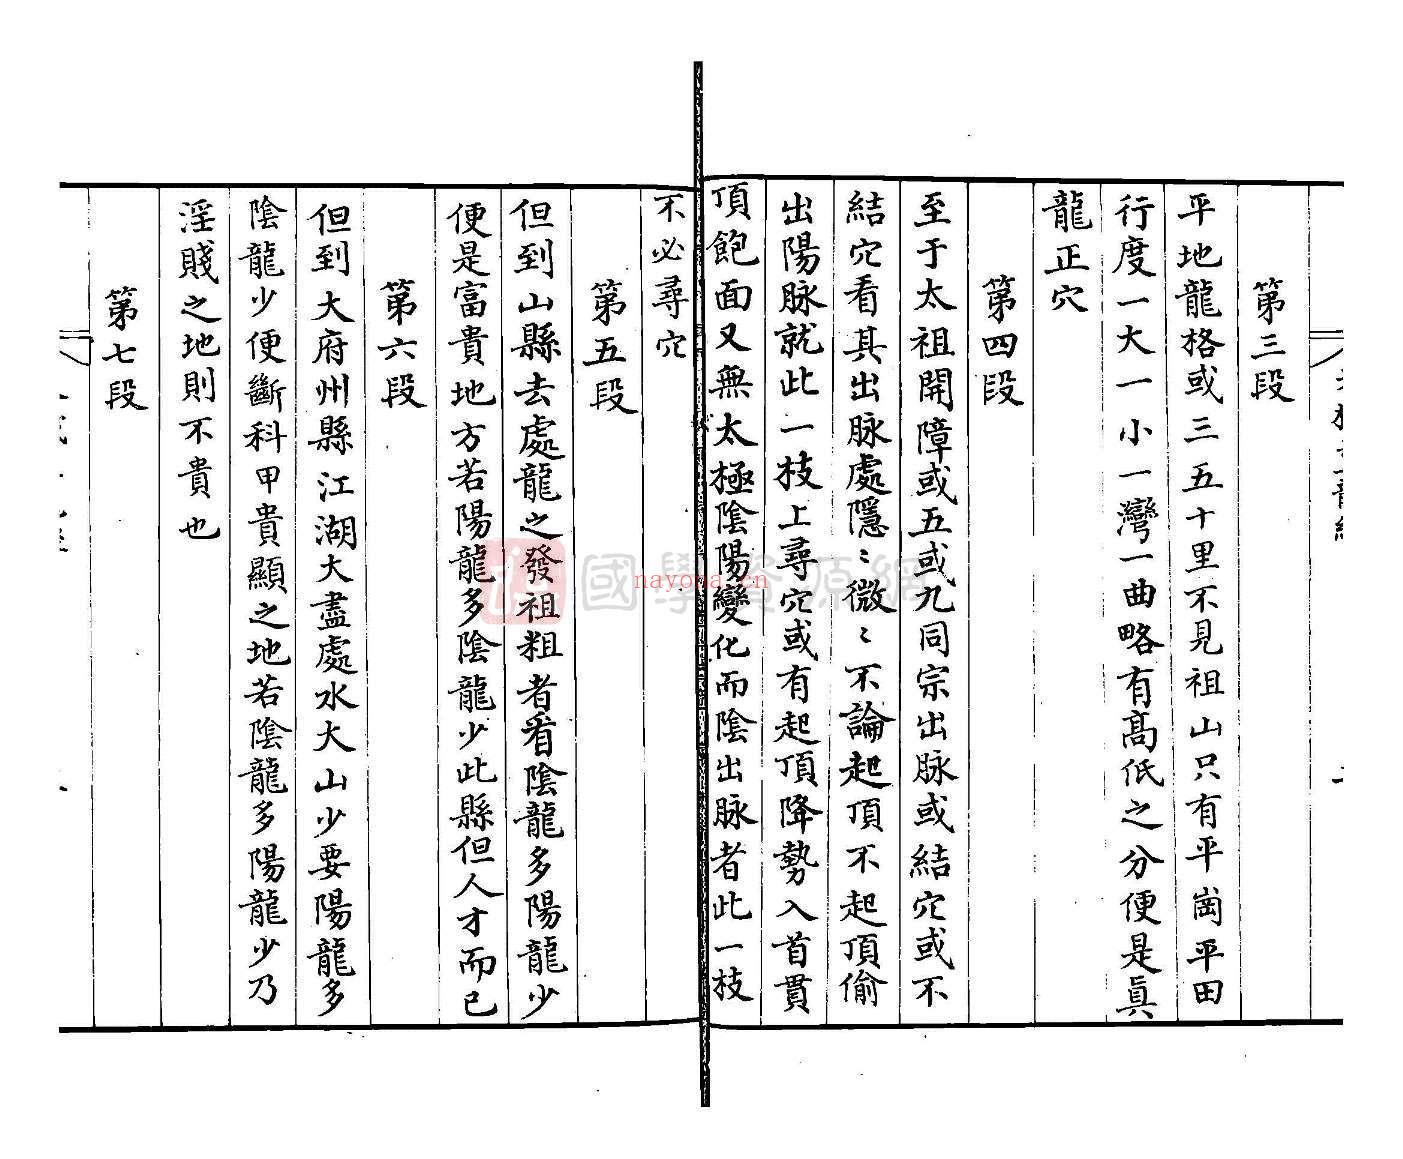 第三段
平地龍格或三五十里不見祖山只有平崗平田
行度一大一小一灣一曲略有高低之分便是眞
龍正穴
第四段
至于太祖開障或五或九同宗出脉或結穴或不
結穴看其出脉處隱〻微〻不論起頂不起頂偷
出陽脉就此一枝上尋穴或有起頂降勢入首貫
頂飽面又無太極陰陽變化而陰出脉者此一枝
不必尋穴
第五段
但到山縣去處龍之發祖粗者看陰龍多陽龍少
便是富貴地方若陽龍多陰龍少此縣但人才而已
第六段
但到大府州縣江湖大盡處水大山少要陽龍多
陰龍少便斷科甲貴顯之地若陰龍多陽龍少乃
淫賤之地則不貴也
第七段
國學資源網
nayona.cn